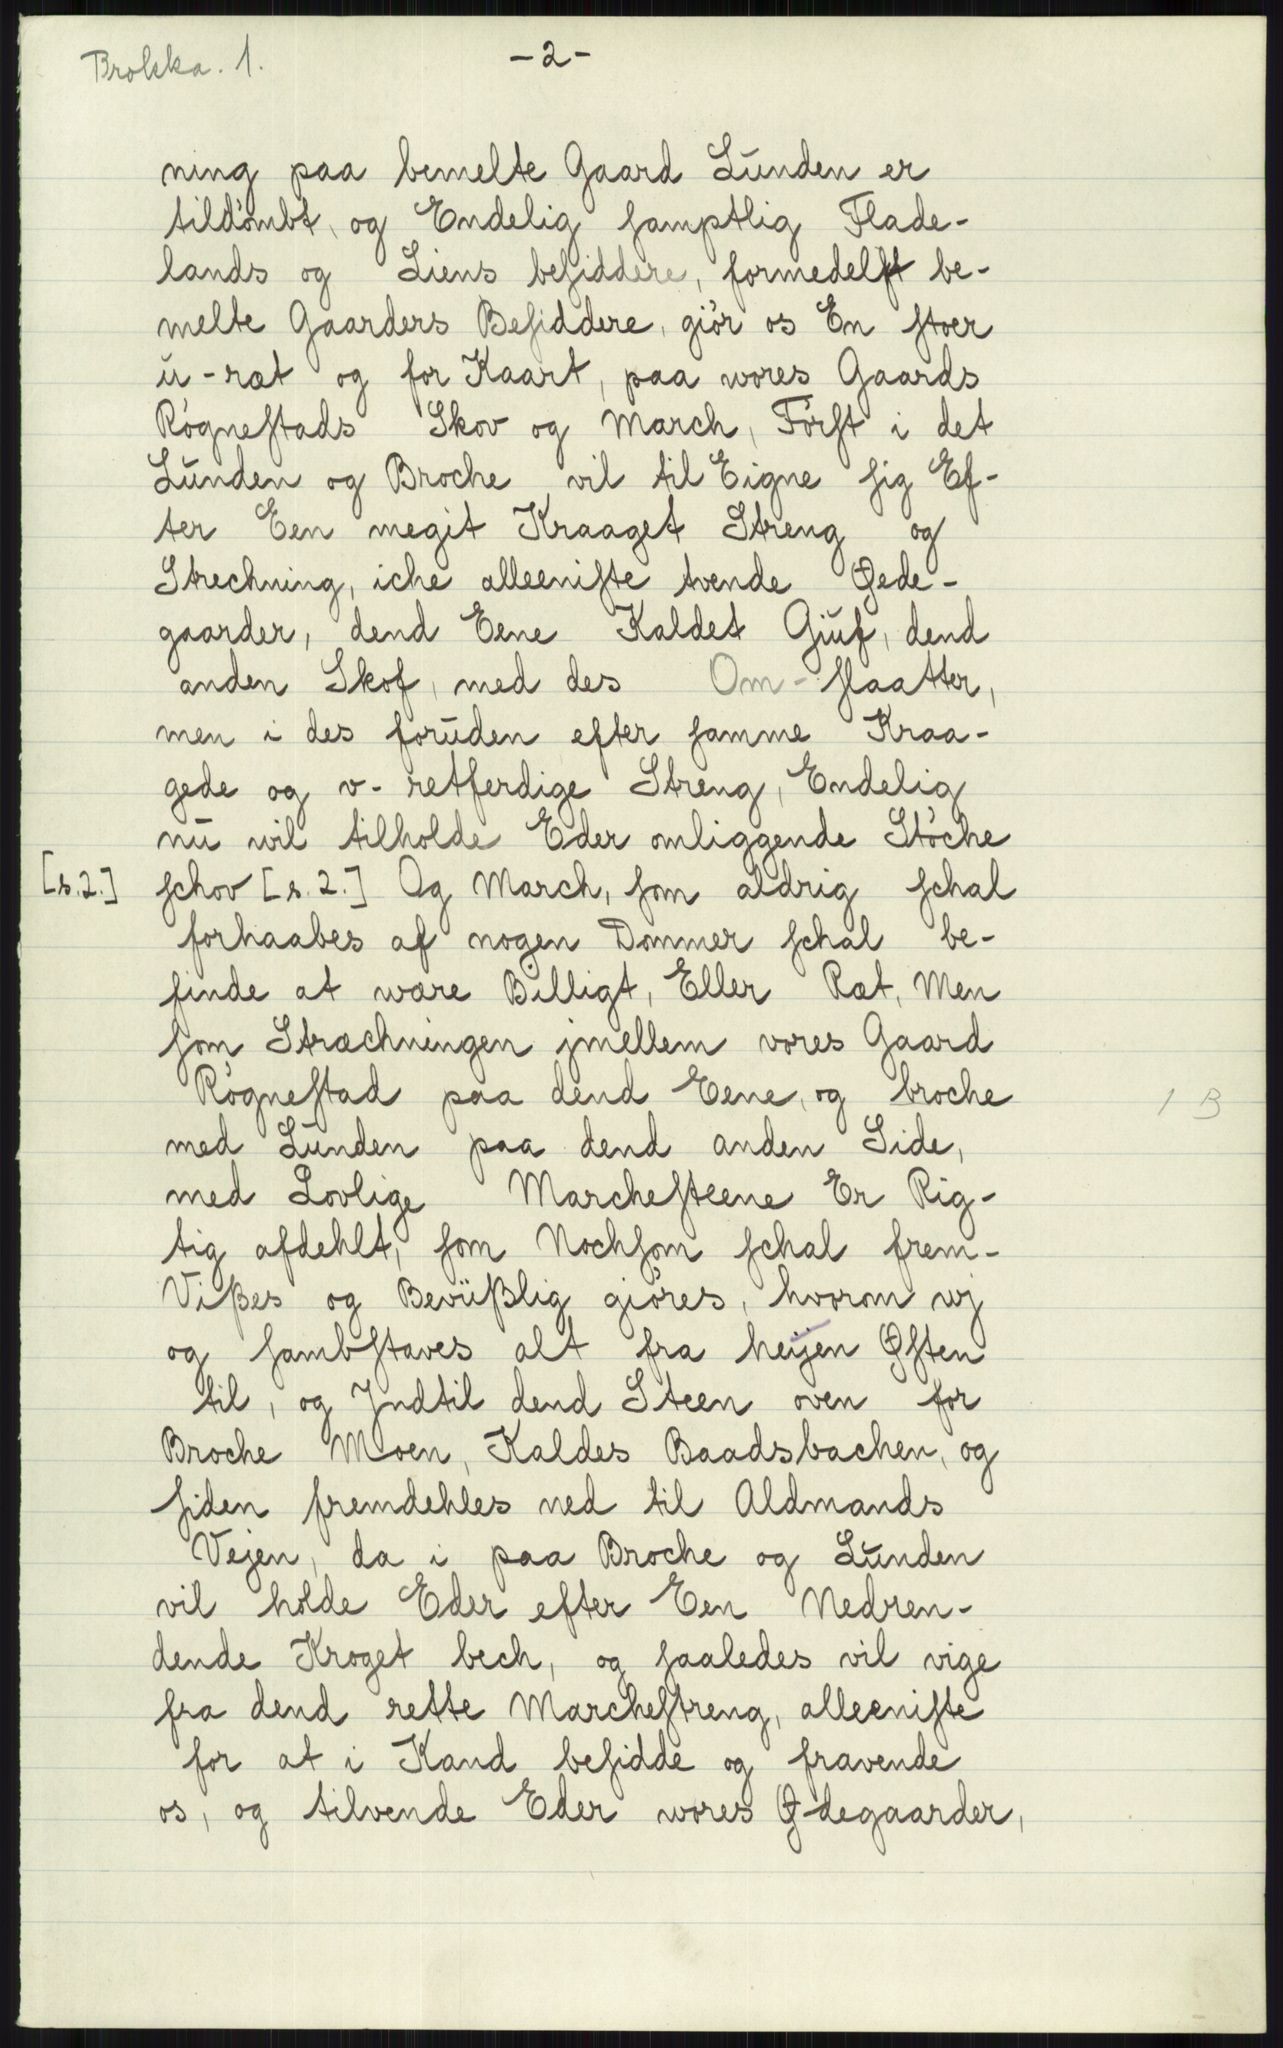 Brokka. 1.
-2-
ning paa bemelte Gaard Lŭnden er
tildömbt, og Endelig ſamptlig Flade-
lands og Liens beſiddere, formedelſt be-
melte Gaarders Beſiddere, giör os En ſtoer
ŭ-ræt og for Kaart, paa wores Gaards
Rögneſtads Skov og March, Förſt i det
Lŭnden og Broche vil til Eigne ſig Ef-
ter Een megit Kraaget Streng og
Strechning, iche alleeniſte tvende Øede-
gaarder, dend Eene Kaldet Gjŭf, dend
anden Skof, med des Om-ſlaatter,
men i des forŭden efter ſamme Kraa-
gede og v-retferdige Streng, Endelig
nŭ wil tilholde Eder omliggende Stöche
[s.2.] ſchov [s.2.] Og March, ſom aldrig ſchal
forhaabes af nogen Dommer ſchal be-
finde at wære Billigt, Eller Ræt, Men
ſom Stræchningen jmellem vores Gaard
Rögneſtad paa dend Eene, og broche
1 B
med Lŭnden paa dend anden Side,
med Lovlige Marcheſteene Er Rig-
tig afdehlt, ſom Nochſom ſchal frem-
Vißes og Bevüßlig giöres, hvorom wj
og ſambſtaves alt fra heijen Øſten
til, og Jndtil dend Steen oven for
Broche Moen, Kaldes Baadsbachen, og
ſiden fremdehles ned til Aldmands
Vejen, da i paa Broche og Lŭnden
vil holde Eder efter Een Nedren-
dende Kroget bech, og ſaaledes vil vige
fra dend rette Marcheſtreng, alleeniſte
for at i Kand beſidde og fravende
os, og tilvende Eder wores Ødegaarder,